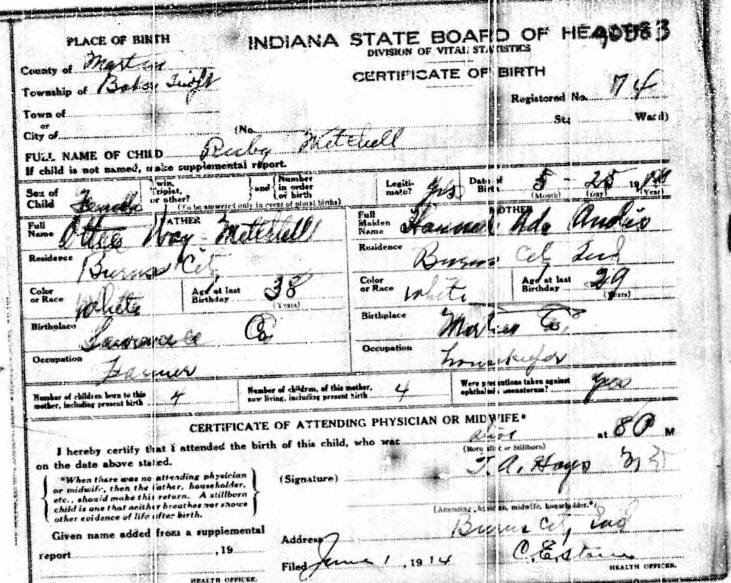 PLACE OF BIRTH
INDIANA STATE BOARD OF HEALTH
DIVISION OF VITAL STATISTICS
CERTIFICATE OF BIRTH
County of Martin
Township of Baker Twp
Registered No. 74
Town of
or
City of
(No. St; Ward)
FULL NAME OF CHILD Ruby Mitchell
If child is not named, make supplemental report.
Sex of Child Female
Twin, Triplet, or other?
and Number in order of birth
(To be answered only in event of plural births)
Legitimate? yes
Date of Birth 5 - 25 19
(Month) (Day) (Year)
FATHER
Full Name Mitchell
Residence Burns City
Color or Race White
Age at last Birthday 38
(Years)
Birthplace Lawrence Co
Occupation Farmer
MOTHER
Full Maiden Name Hannah Ada
Residence Burns City Ind
Color or Race White
Age at last Birthday 29
(Years)
Birthplace Martin Co
Occupation housekeeper
Number of children born to this mother, including present birth 4
Number of children, of this mother, now living, including present birth 4
Were precautions taken against ophthalmia neonatorum? yes
CERTIFICATE OF ATTENDING PHYSICIAN OR MIDWIFE*
I hereby certify that I attended the birth of this child, who was alive at M
(Born alive or Stillborn)
on the date above stated.
*When there was no attending physician
or midwife, then the father, householder,
etc., should make this return. A stillborn
child is one that neither breathes nor shows
other evidence of life after birth.
(Signature) T. A. Hays M D
(Attending physician, midwife, householder.*)
Given name added from a supplemental
report , 19
HEALTH OFFICER.
Address Burns City, Ind
Filed June 1, 1914
HEALTH OFFICER.